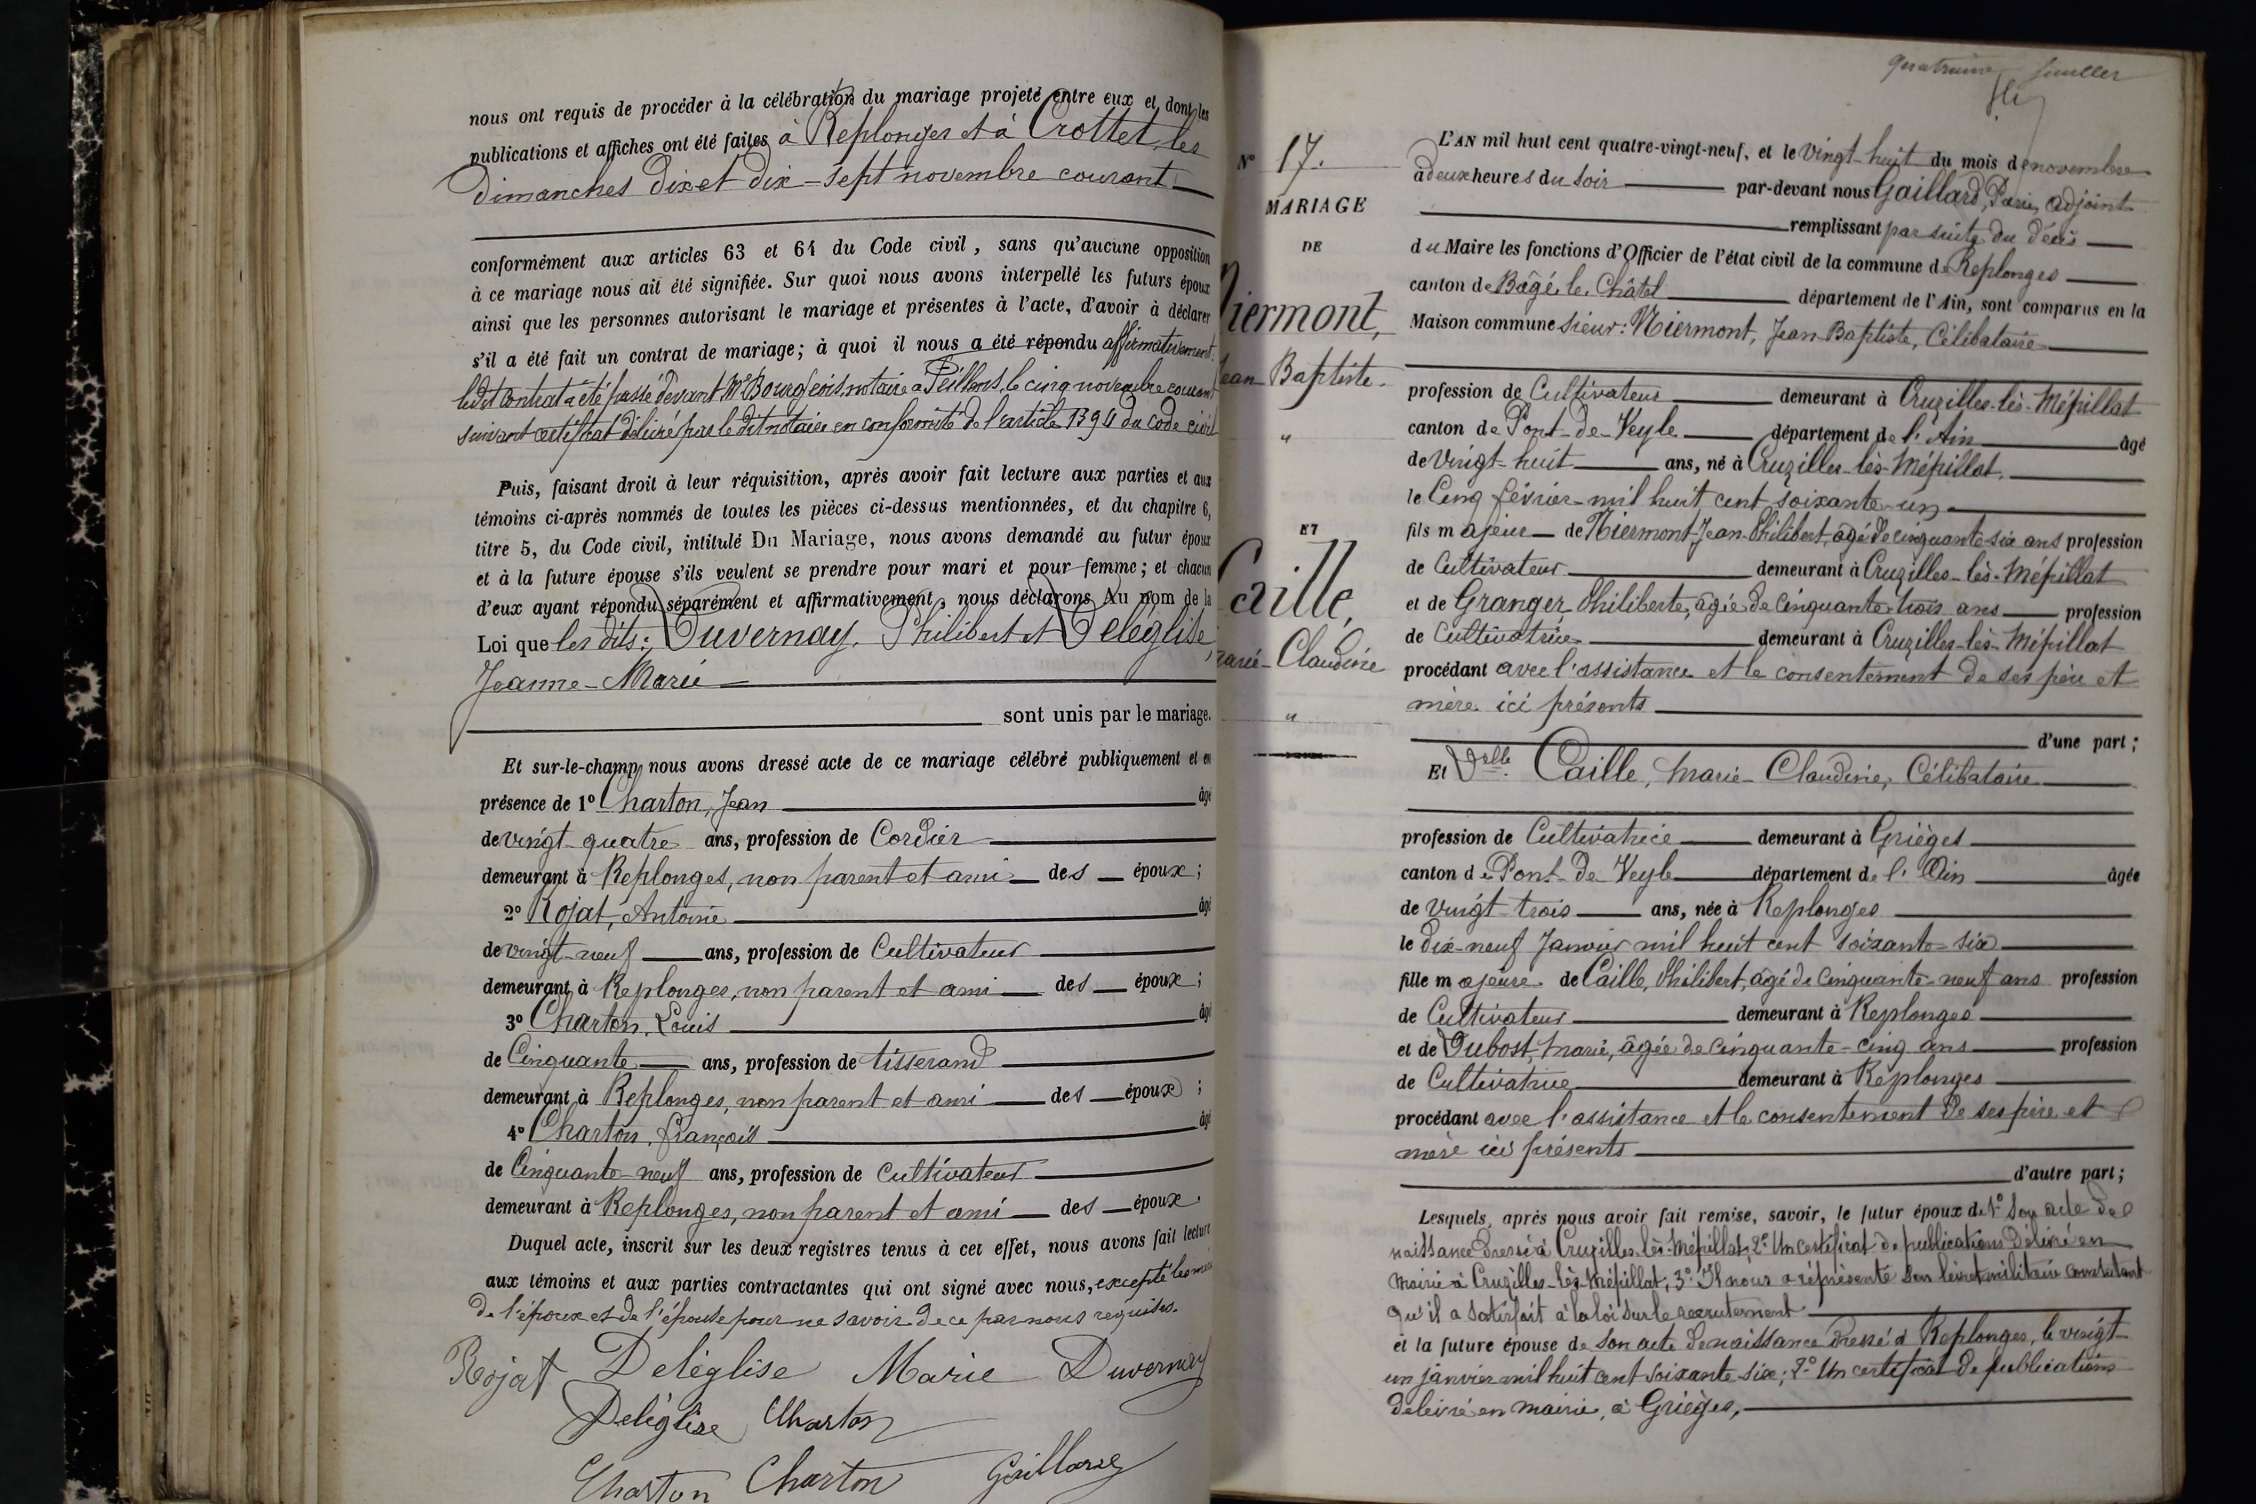 nous ont requis de procéder à la célébration du mariage projeté entre eux et dont les
publications et affiches ont été faites à Replonges et à Crottet, les
dimanches dix et dix-sept novembre courant
conformément aux articles 63 et 64 du Code civil, sans qu'aucune opposition
à ce mariage nous ait été signifiée. Sur quoi nous avons interpellé les futurs époux
ainsi que les personnes autorisant le mariage et présentes à l'acte, d'avoir à déclarer
s'il a été fait un contrat de mariage; à quoi il nous a été répondu affirmativement.
ledit contrat a été passé devant Me Bourgeois, notaire à, le cinq novembre courant
suivant certificat délivré par le dit notaire en conformité de l'article 1394 du code civil
Puis, faisant droit à leur réquisition, après avoir fait lecture aux parties et aux
témoins ci-après nommés de toutes les pièces ci-dessus mentionnées, et du chapitre 6,
titre 5, du Code civil, intitulé Du Mariage, nous avons demandé au futur époux
et à la future épouse s'ils veulent se prendre pour mari et pour femme; et chacun
d'eux ayant répondu séparément et affirmativement, nous déclarons Au nom de la
Loi que les dits: Duvernay, Philibert et Deléglise,
Jeanne-Marie
sont unis par le mariage.
Et sur-le-champ nous avons dressé acte de ce mariage célébré publiquement et en
présence de 1° Charton, Jean âgé
de vingt-quatre ans, profession de Cordier
demeurant à Replonges, non parent et ami des époux;
2° Rojat, Antoine âgé
de vingt-neuf ans, profession de Cultivateur
demeurant à Replonges, non parent et ami des époux;
3° Charton, Louis âgé
de Cinquante ans, profession de tisserand
demeurant à Replonges, non parent et ami des époux;
4° Charton, françois âgé
de Cinquante-neuf ans, profession de cultivateur
demeurant à Replonges, non parent et ami des époux.
Duquel acte, inscrit sur les deux registres tenus à cet effet, nous avons fait lecture
aux témoins et aux parties contractantes qui ont signé avec nous, excepté les
de l'époux et de l'épouse pour ne savoir de ce par nous requises.
Rojat Deléglise Marie Duvernay
Deléglise Charton
Charton Charton Gaillard
feuillet
N° 17.
MARIAGE
DE
Niermont,
Jean Baptiste.
"
ET
Caille,
Marie-Claudine
"
L'AN mil huit cent quatre-vingt-neuf, et le vingt-huit du mois de novembre
à deux heures du soir par-devant nous Gaillard, adjoint
remplissant par suite du décès
du Maire les fonctions d'Officier de l'état civil de la commune de Replonges
canton de Bâgé-le-Châtel département de l'Ain, sont comparus en la
Maison commune sieur: Niermont, Jean-Baptiste, Célibataire
profession de Cultivateur demeurant à Cruzilles-lès-Mépillat
canton de Pont-de-Veyle département de l'Ain âgé
de vingt-huit ans, né à Cruzilles-lès-Mépillat,
le Cinq février mil huit cent soixante-un
fils majeur de Niermont Jean-Philibert, âgé de cinquante six ans profession
de Cultivateur demeurant à Cruzilles-lès-Mépillat
et de Granger Philiberte, âgée de cinquante-trois ans profession
de Cultivatrice demeurant à Cruzilles-lès-Mépillat
procédant avec l'assistance et le consentement de ses père et
mère ici présents
d'une part;
Et Delle Caille, Marie-Claudine, Célibataire
profession de Cultivatrice demeurant à Grièges
canton de Pont-de-Veyle département de l'Ain âgée
de vingt-trois ans, née à Replonges
le dix-neuf Janvier mil huit cent soixante-six
fille majeure de Caille, Philibert, âgé de cinquante-neuf ans profession
de Cultivateur demeurant à Replonges
et de Dubost, Marie, âgée de cinquante-cinq ans profession
de Cultivatrice demeurant à Replonges
procédant avec l'assistance et le consentement de ses père et
mère ici présents
d'autre part;
Lesquels, après nous avoir fait remise, savoir, le futur époux de 1° Son acte de
naissance dressé à Cruzilles-lès-Mépillat; 2° Un certificat de publications délivré en
mairie à Cruzilles-lès-Mépillat; 3° Il nous a représenté son livret militaire constatant
qu'il a satisfait à la loi sur le recrutement
et la future épouse de son acte de naissance dressé à Replonges, le vingt-
un janvier mil huit cent soixante-six; 2° Un certificat de publications
délivré en mairie, à Grièges,